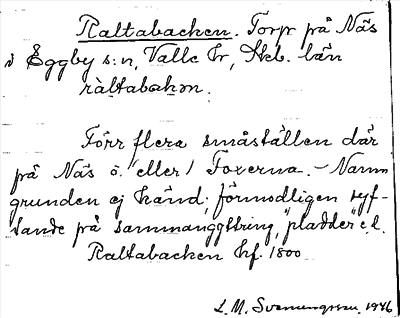 Raltabacken. Torp på Näs
i Eggby s:n, Valle hr, Skb. län
ràltabakən.
Förr flera småställen där
på Näs ö. (eller) Toxerna. - Namn
grunden ej känd; förmodligen syf-
tande på sammangyttring, "pladder" e.d.
Raltabacken hf. 1800
L. M. Svennungsson. 1946